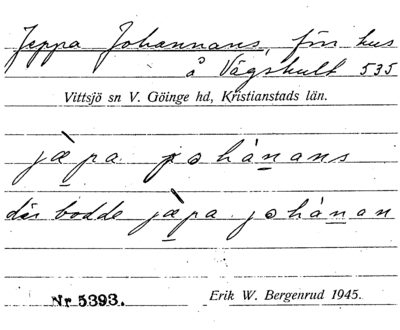 Jeppa Johannans, för hus
å Vägshult 535
Vittsjö sn V. Göinge hd, Kristianstads län.
jæ̀pa johánans
där bodde jæ̀pa johánan
Nr 5393.
Erik W. Bergenrud 1945.